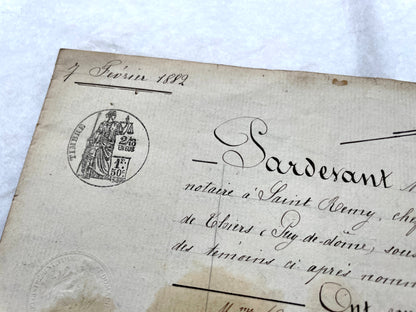 7 Février 1882
TIMBRE
2/10
EN SUS
1F
50c
Pardevant M
notaire à Saint Remy, che
de Thiers (Puy-de-dôme), sous
des témoins ci après nomm
Ont